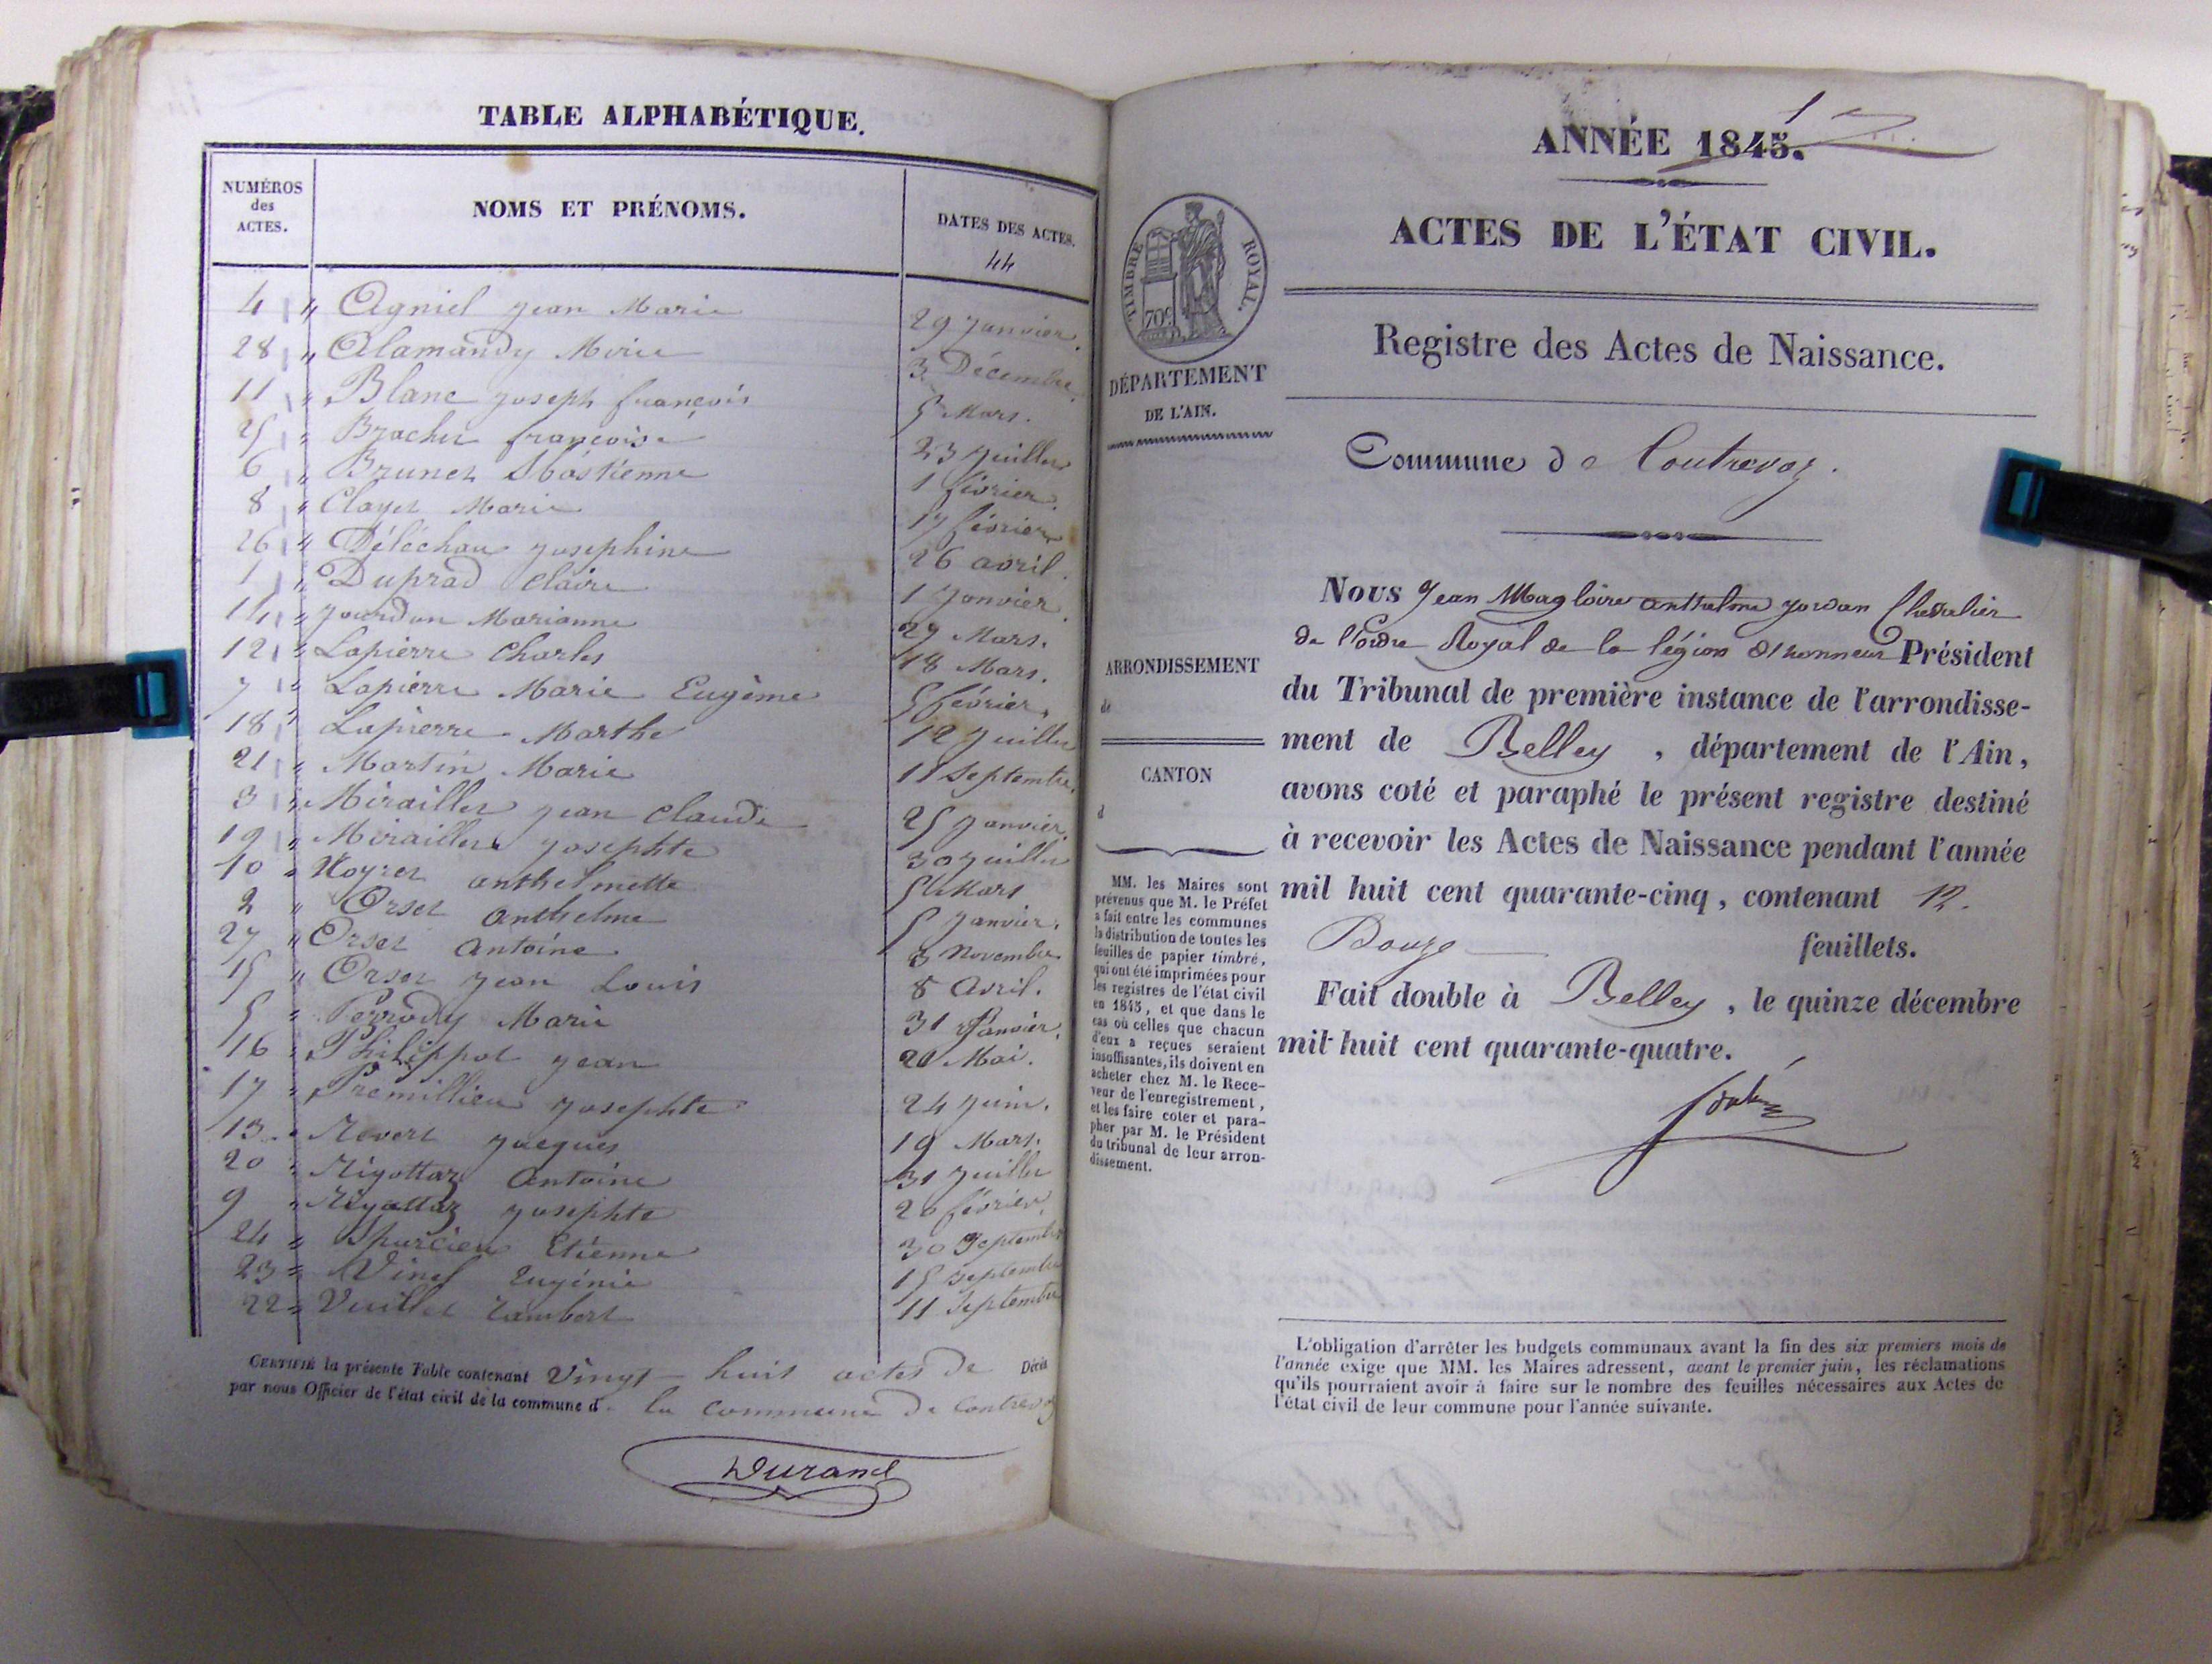 TABLE ALPHABÉTIQUE.
NUMÉROS des ACTES.
NOMS ET PRÉNOMS.
DATES DES ACTES.
44
4 " Agniel Jean Marie 29 Janvier.
28 " Alamandy Marie 3 Décembre.
11 " Blanc Joseph françois 5 Mars.
25 " Brachet françoise 23 Juillet
6 " Brunet Sbastienne 1 février.
8 " Clayet Marie 17 février
26 " Déléchau Josephine 26 avril.
1 " Duprad Claire 1 Janvier.
14 " Jourdan Marianne 27 Mars.
12 " Lapierre Charles 18 Mars.
7 " Lapierre Marie Eugème 5 février.
18 " Lapierre Marthe 12 Juillet
21 " Martin Marie 11 Septembre.
3 " Mirailler Jean Claude 25 Janvier.
19 " Mirailler Josephte 30 Juillet
10 " Noyret anthelmette 5 Mars
2 " Orset Anthelme 5 Janvier.
27 " Orset Antoine 3 Novembre.
15 " Orset Jean Louis 8 Avril.
5 " Perrody Marie 31 Janvier.
16 " Philippot Jean 20 Mai.
17 " Premillieu Josephte 24 Juin.
13 " Revert Jacques 19 Mars.
20 " Rigottaz Antoine 31 Juillet
9 " Rigottaz Josephte 20 février.
24 " Thurcieu Etienne 30 Septembre
23 " Vinet Eugénie 15 Septembre
22 " Vuillet Lambert 11 Septembre
CERTIFIÉ la présente Table contenant Vingt-huit actes de Décès
par nous Officier de l'état civil de la commune d la commune de Contrevoz
Durand
1
ANNÉE 1845.
ACTES DE L'ÉTAT CIVIL.
TIMBRE ROYAL.
70c
Registre des Actes de Naissance.
DÉPARTEMENT
DE L'AIN.
Commune de Contrevoz.
Nous Jean Magloire anthelme Jordan Chevalier
de l'ordre Royal de la légion d'honneur Président
du Tribunal de première instance de l'arrondisse-
ment de Belley, département de l'Ain,
avons coté et paraphé le présent registre destiné
à recevoir les Actes de Naissance pendant l'année
mil huit cent quarante-cinq, contenant 12.
Douze feuillets.
Fait double à Belley, le quinze décembre
mil huit cent quarante-quatre.
ARRONDISSEMENT
de
CANTON
d
MM. les Maires sont
prévenus que M. le Préfet
a fait entre les communes
la distribution de toutes les
feuilles de papier timbré,
qui ont été imprimées pour
les registres de l'état civil
en 1845, et que dans le
cas où celles que chacun
d'eux a reçues seraient
insuffisantes, ils doivent en
acheter chez M. le Rece-
veur de l'enregistrement,
et les faire coter et para-
pher par M. le Président
du tribunal de leur arron-
dissement.
L'obligation d'arrêter les budgets communaux avant la fin des six premiers mois de
l'année exige que MM. les Maires adressent, avant le premier juin, les réclamations
qu'ils pourraient avoir à faire sur le nombre des feuilles nécessaires aux Actes de
l'état civil de leur commune pour l'année suivante.